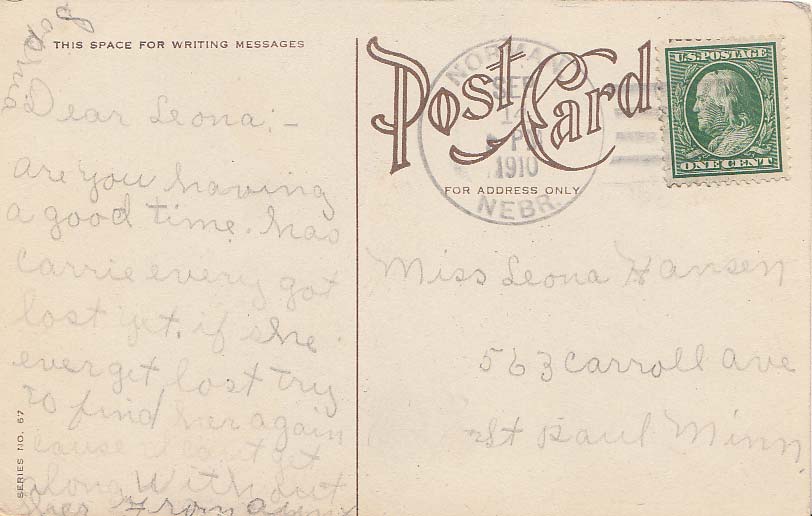 THIS SPACE FOR WRITING MESSAGES
Dear Leona:-
are you having
a good time. has
carrie every got
lost yet. if she
ever get lost try
to find her again
cause I can't get
along without
her From
SERIES NO. 67
Post Card
FOR ADDRESS ONLY
NORMAN
SEP
14
PM
1910
NEBR.
U.S. POSTAGE
ONE CENT
Miss Leona Hansen
563 Carroll ave
St Paul Minn